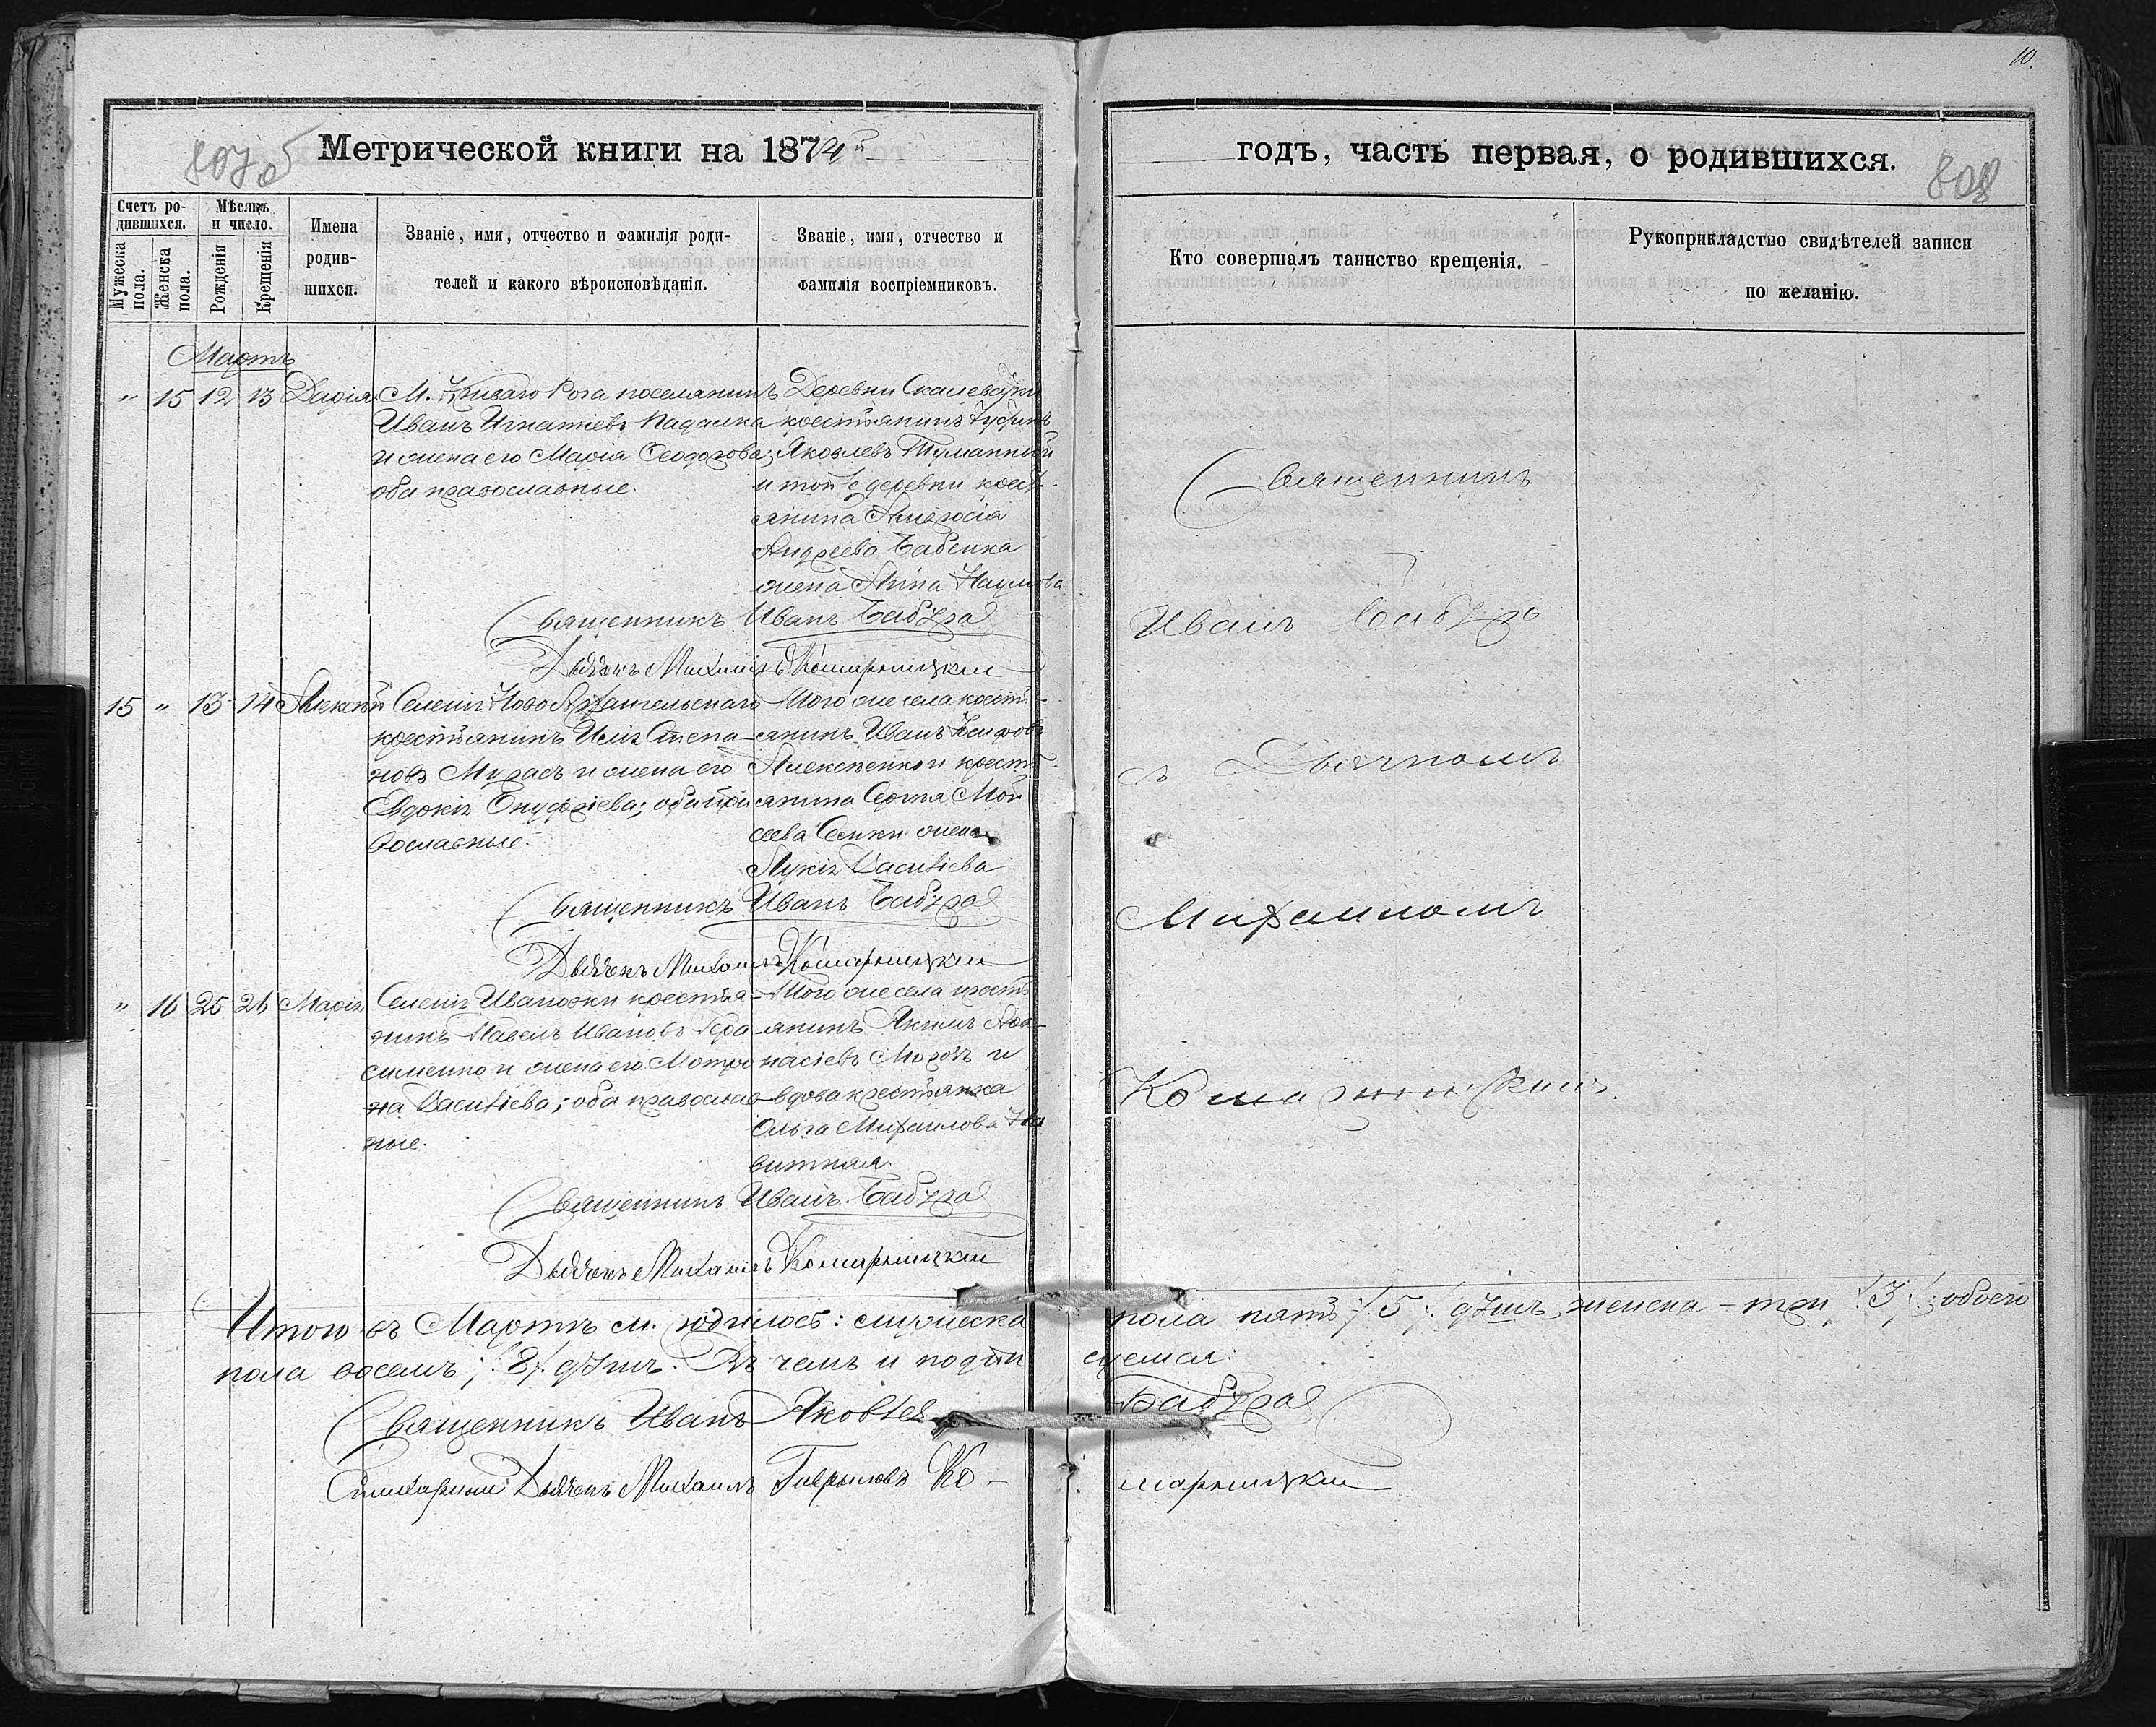 10.
Метрической книги на 1874й
годъ, часть первая, о родившихся.
807 об
808
Счетъ родившихся.
Мужеска пола.
Женска пола.
Мѣсяцъ и число.
Рожденія
Крещенія
Имена родившихся.
Званіе, имя, отчество и фамилія родителей и какого вѣроисповѣданія.
Званіе, имя, отчество и фамилія воспріемниковъ.
Кто совершалъ таинство крещенія.
Рукоприкладство свидѣтелей записи по желанію.
Мартъ
" 15 12 13 Дарія
М. Криваго Рога поселянинъ
Иванъ Игнатіевъ Падалка
и жена его Марія Ѳеодорова;
оба православные.
Деревни
крестьянинъ
Яковлевъ Туманный
и той же деревни крест-
янина Амвросія
Андреева Бабенка
жена Анна Наумова
Священникъ Иванъ Бабура
Дьячокъ Михаилъ Комарницкій
15 " 13 14 Алексѣй
Селенія Ново Архангельскаго
крестьянинъ Илія Степа-
новъ Мурасъ и жена его
Евдокія Онуфріева; оба пра
вославные.
Того же села кресть-
янинъ Иванъ
Алексѣенко и кресть-
янина Сергѣя Мои
сеева Сенки жена
Лукія Василіева
Священникъ Иванъ Бабура
Дьячокъ Михаилъ Комарницкій
" 16 25 26 Марія
Селенія Ивановки крестья-
нинъ Павелъ Ивановъ Гера-
сименко и жена его Мотро
на Василіева; оба православ-
ные.
Того же села кресть
янинъ Якимъ Афа-
насіевъ Морозъ и
вдова крестьянка
Ольга Михаилова
Священникъ Иванъ Бабура
Дьячокъ Михаилъ Комарницкій
Священникъ
Иванъ Бабура
съ Дьячкомъ
Михаиломъ
Комарницкимъ.
Итого въ Мартѣ м. родилось: мужеска пола пять /:5:/ душъ, женска – три /:3:/; обоего
пола восемь /:8:/ душъ. Въ чемъ и подпи суемся:
Священникъ Иванъ Яковлев Бабура
Дьячокъ Михаилъ Гавриловъ Ко-марницкій